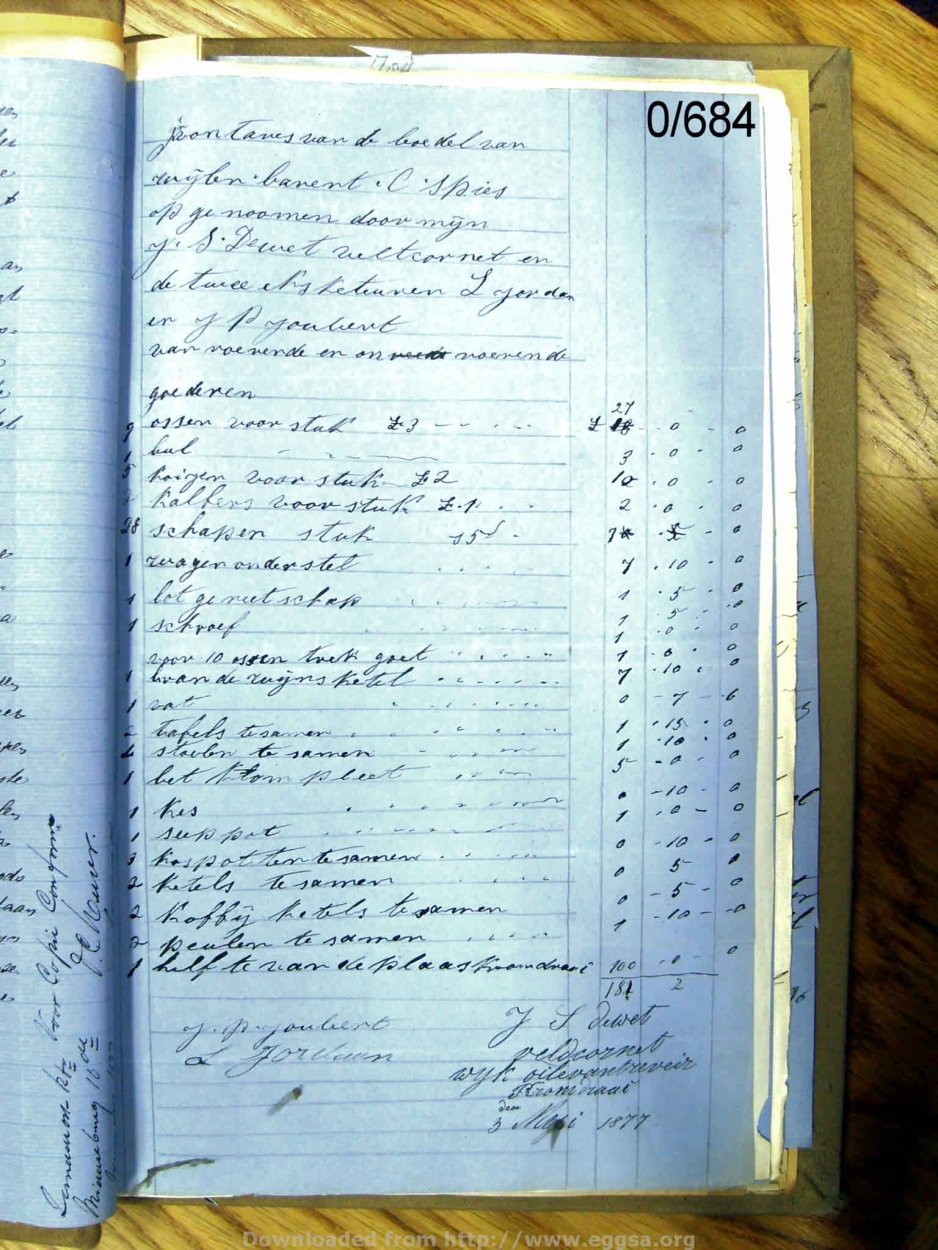 0/684
jnvontares van de boedel van
wijlen barent . C . Spies
op ge noomen door mijn
J. S. Dewet veltcornet en
de twee eksketeuren L Jordan
en J P Joubert
van roerende en on roerende
goederen
9 ossen voor stuk £3 27
£ 18 . 0 - 0
1 bul 3 . 0 . 0
5 koigen voor stuk £2 10 . 0 . 0
2 kalbers voor stuk £.1 . . 2 . 0 . 0
28 schapen stuk 15
1 wagen onderstel 7 . 10 - 0
1 lot gereetschap 1 . 5 . 0
1 schroef 1 . 5 . 0
voor 10 ossen trek goet 1 . 0 . 0
1 brande wijns ketel 7 . 10 . 0
1 vat 0 - 7 - 6
2 tafels tesamen 1 . 15 . 0
stoelen te samen 1 . 10 . 0
1 bet kompleet 5 - 0 - 0
1 kes 0 - 10 - 0
1 seep pot 1 . 0 - 0
3 kospotten tesamen 0 - 10 - 0
2 ketels tesamen 0 5 0
2 koffij ketels tesamen 0 - 5 - 0
2 peulen te samen 1 - 10 - 0
1 helfte van de plaas kromdraai 100 . 0 - 0
181 2
J. P. Joubert J S dewet
L Jordaan veldcornet
wyk
Kromdraai
den
3 Mei 1877
voor Copie Conform
Downloaded from http://www.eggsa.org